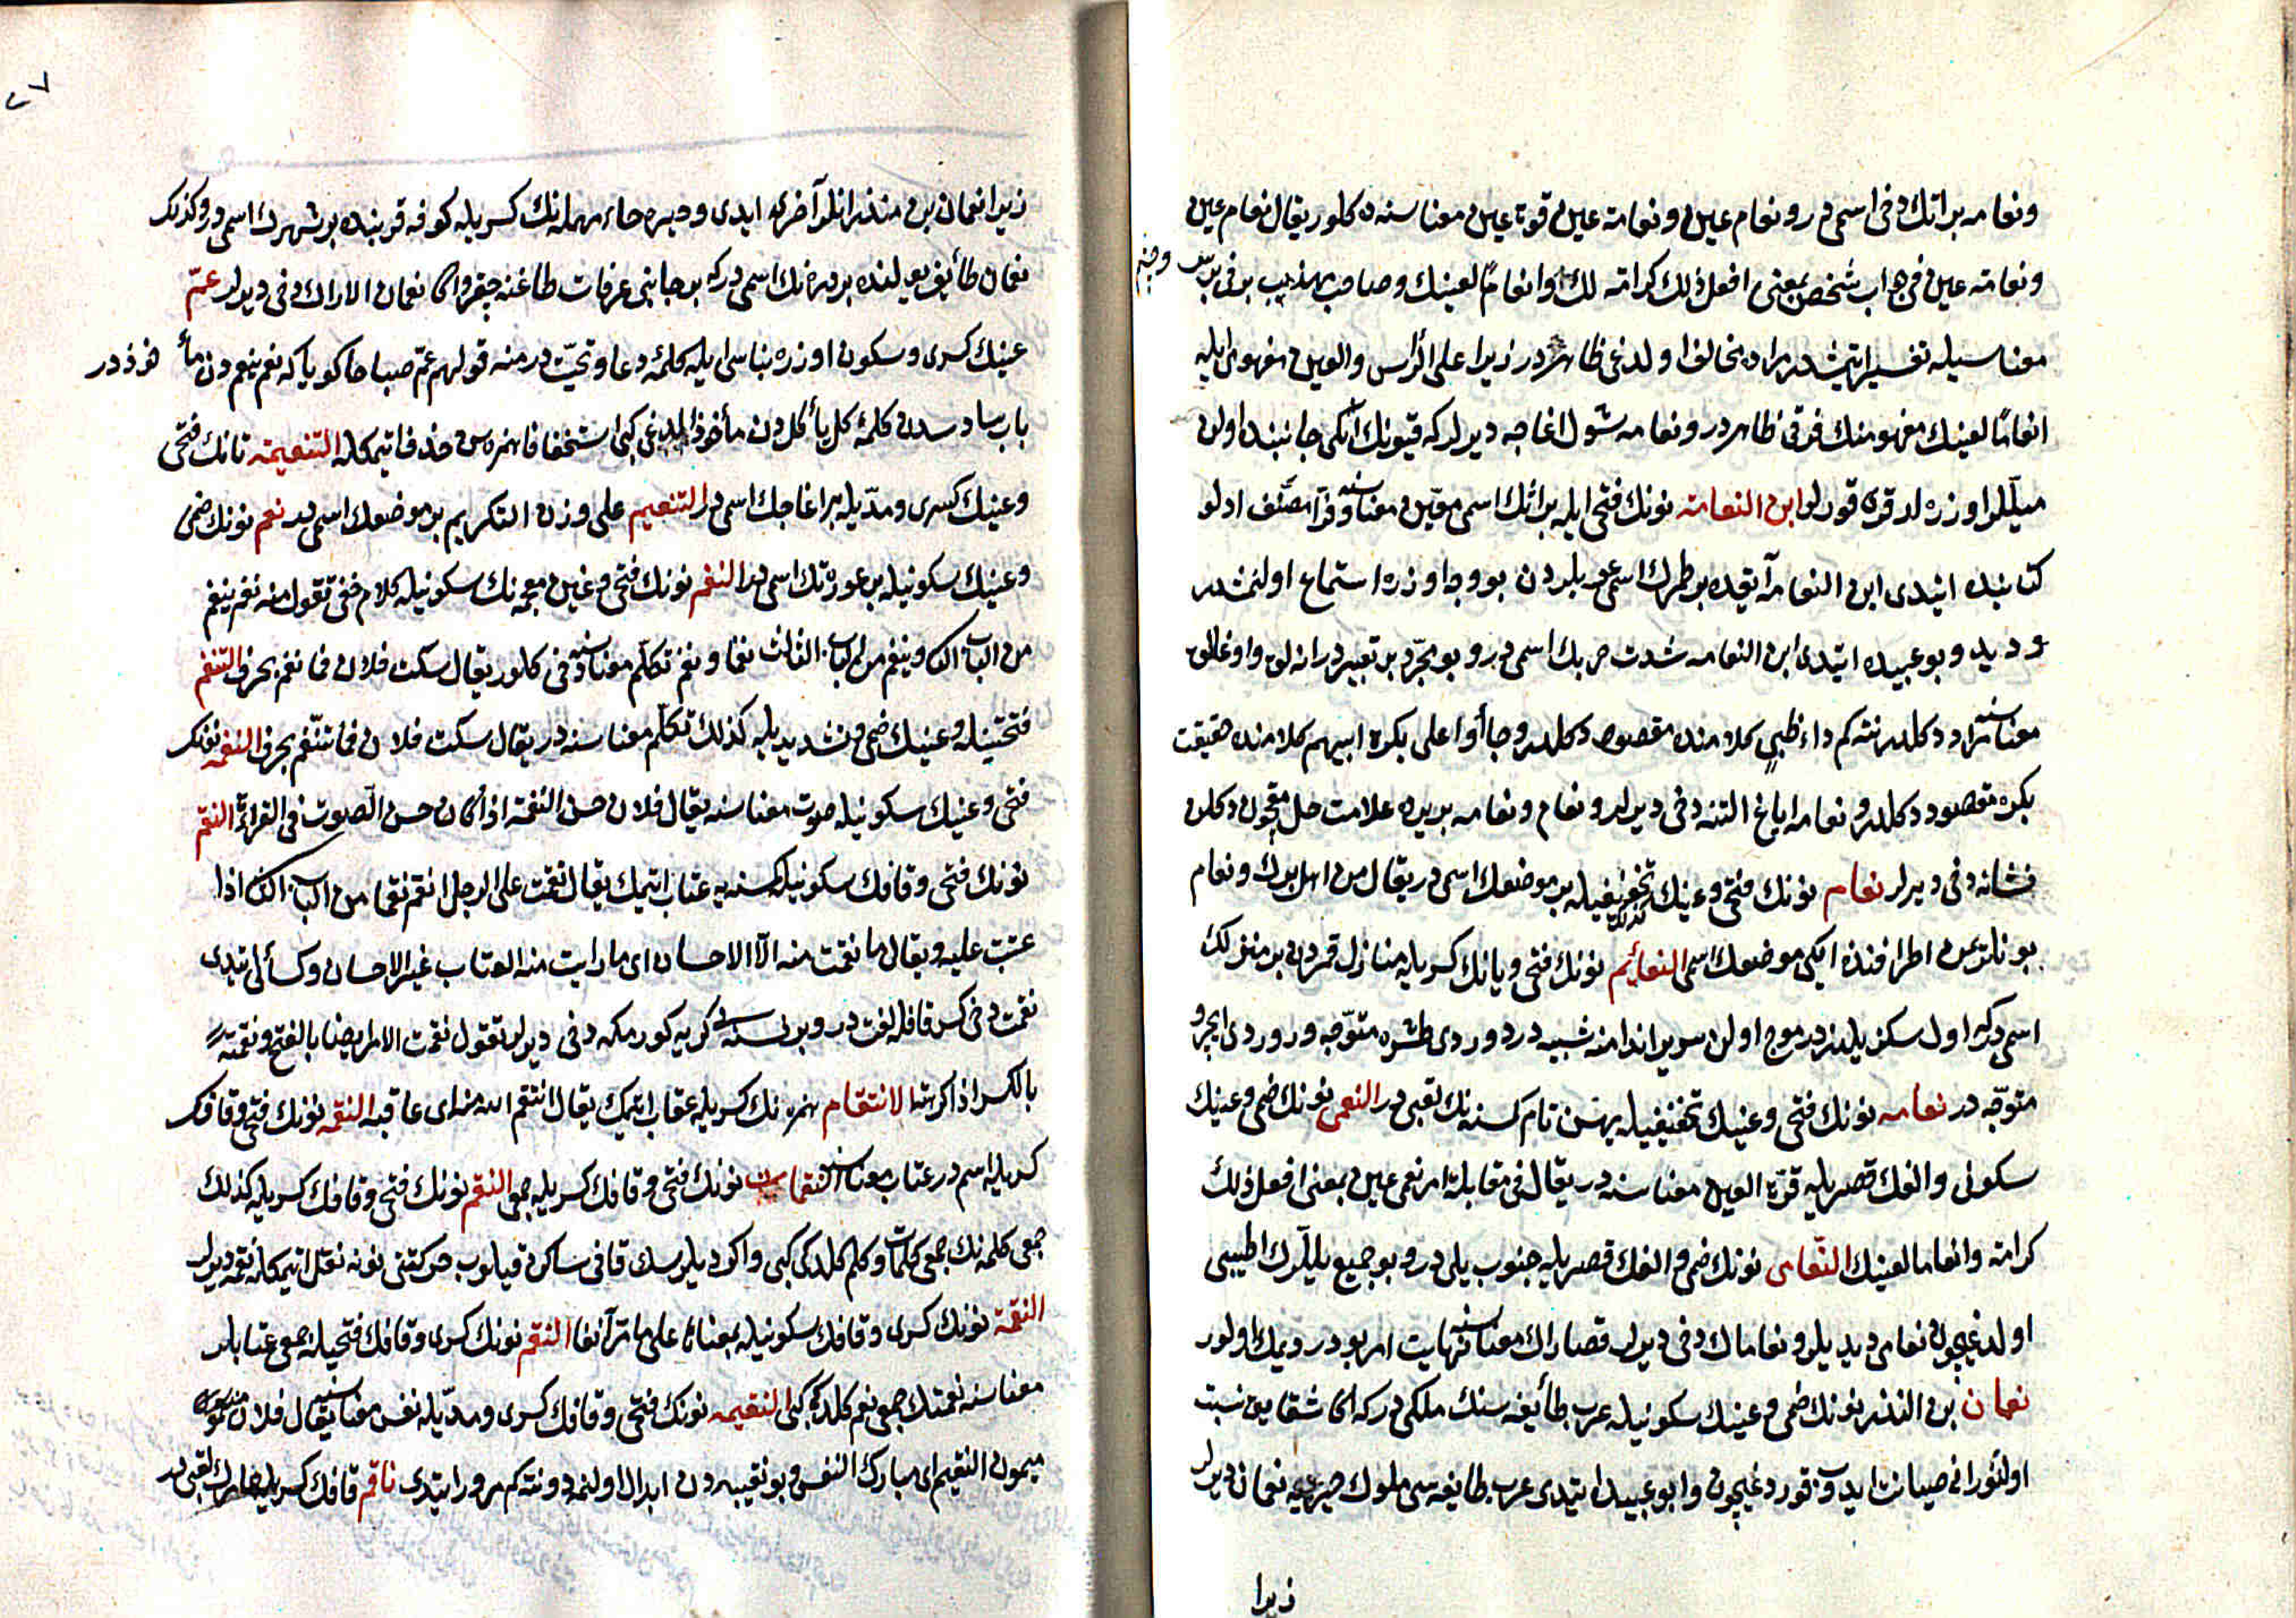 ونعامه بر اتك دخى اسمى در ونعام عين ونعامة عين قوة عين معناسنه كلور يقال نعام عين
ونعامة عين فى جواب شخص بمعنى افعل ذلك كرامة لك وانعاما لعينك وصاحب تهذيب
معناسيله تفسير ايتمشدر مراده مخالف اولدغى ظاهر در زيرا على الرأس والعين مفهومى ايله
انعاما لعينك مفهومنك فرقى ظاهر در ونعامه شول اغاجه ديرلر كه قيونك ايكى جانبنده اولن
ميللر اوزره لر قورلر ابن النعامة نونك فتحى ايله بر اتك اسمى معناسنه وفرا مصنف ادلو
كتابنده ايتدى ابن النعامه آيقده بر طمرك اسمى عربلردن بو وجه اوزره استماع اولنمشدر
ديدى وبو عبيده ايتدى ابن النعامه شدت حربك اسمى در وبو مجرد بر تعبير در
معناسنه مراد دكلدر نته كم داء ظبى كلامنده مقصود دكلدر وجاؤا على بكرة ابيهم كلامنده حقيقت
بكره مقصود دكلدر ونعامه اياغ التنه دخى ديرلر ونعام ونعامه بريده علامت
نشانه دخى ديرلر نعام نونك فتحى وعينك تخفيفيله بر موضعك اسمى در يقال من اهل برك ونعام
بونلر يمن اطرافنده ايكى موضعك اسمى النعائم نونك فتحى ويانك كسريله منازل قمردن بر منزلك
اسمى در كه اول سكز يلدزدر
متوجه در نعامه نونك فتحى وعينك تخفيفيله بيهس نام كسنه نك لقبى در النعمى نونك ضمى وعينك
سكونى والفك قصريله قرة العين معناسنه در يقال فى مقابلة امر نعمى عين بمعنى افعل ذلك
كرامة وانعاما لعينك النعامى نونك ضمى والفك قصريله جنوب يلى در وبو جميع يللرك اطيبى
اولدغيچون نعامى ديديلر ونعاماك دخى ديرلر قصاراك معناسنه نهايت امر بو در ديمك اولور
نعمان بن المنذر نونك ضمى وعينك سكونيله عرب طائفه سنك ملكى در كه اكا شقايق نسبت
اولنور انى صيانت ايدوب قوردغيچون وابو عبيد ايتدى عرب طايفه سى ملوك حيره يه نعمان ديرلر
زيرا
٢٧
زيرا نعمان بن منذر انلرك آخرى ايدى وحيره حاء مهمله نك كسريله كوفه قربنده بر شهرك اسمى در وكذلك
نعمان طائف يولنده بر دره نك اسمى در كه بر جانبى عرفات طاغنه چيقر واكا نعمان الاراك دخى ديرلر عم
عينك كسرى وسكون اوزره بناسى ايله كلمه دعا وتحيت در منه قولهم عم صباحا كويا كه نعم ينعم دن مأخوذدر
باب سادسدن كلمه كل يأكل دن مأخوذ اولدغى كبى استخفافا همزه سن حذف ايتمكله التنعيمة تانك فتحى
وعينك كسرى ومديله بر اغاجك اسمى در التنعيم على وزن التكريم بر موضعك اسمى در نعم نونك ضمى
وعينك سكونيله بر عورتك اسمى در النغم نونك فتحى وغين معجمه نك سكونيله كلام خفى تقول منه نغم ينغم
من الباب الثانى وينغم من الباب الثالث نغما ونغم تكلم معناسنه دخى كلور يقال سكت فلان فما نغم بحرف التنغم
فتحتينله وغينك ضمى وتشديديله كذلك تكلم معناسنه در يقال سكت فلان فما تنغم بحرف النغمه نونك
فتحى وغينك سكونيله صوت معناسنه يقال فلان حسن النغمة اذا كان حسن الصوت فى القراءة النقم
نونك فتحى وقافك سكونيله كسنه يه عتاب ايتمك يقال نقمت على الرجل انقم نقما من الباب الثانى اذا
عتبت عليه ويقال ما نقمت منه الا الاحسان اى ما رايت منه العتاب غير الاحسان وكسائى ايتدى
نقمت دخى كسر قافله لغت در وبر نسنه يى كريه كورمكه دخى ديرلر تقول نقمت الامر ايضا بالفتح ونقمته
بالكسر اذا كرهته الانتقام همزه نك كسريله عقاب ايتمك يقال انتقم الله منه اى عاقبه النقمه نونك فتحى وقافك
كسريله اسم در عتاب معناسنه النقمات نونك فتحى وقافك كسريله جمعى النقم نونك فتحى وقافك كسريله كذلك
جمعى كلمه نك جمعى كلمات وكلم كلدكى كبى واكر ديلرسك قافى ساكن قيلوب حركتنى نونه نقل ايتمكله نقمه ديرلر
النقمة نونك كسرى وقافك سكونيله بمعناها على ما مر آنفا النقم نونك كسرى وقافك فتحيله جمعى عتابلر
معناسنه نعمتك جمعى نعم كلدكى كبى النقيمه نونك فتحى وقافك كسرى ومديله نفس معناسنه يقال فلان
ميمون النقيمة اى مبارك النفس وبو نقيبه دن ابدال اولندى نته كم مرور ايتدى ناقم قافك كسريله لقبى در